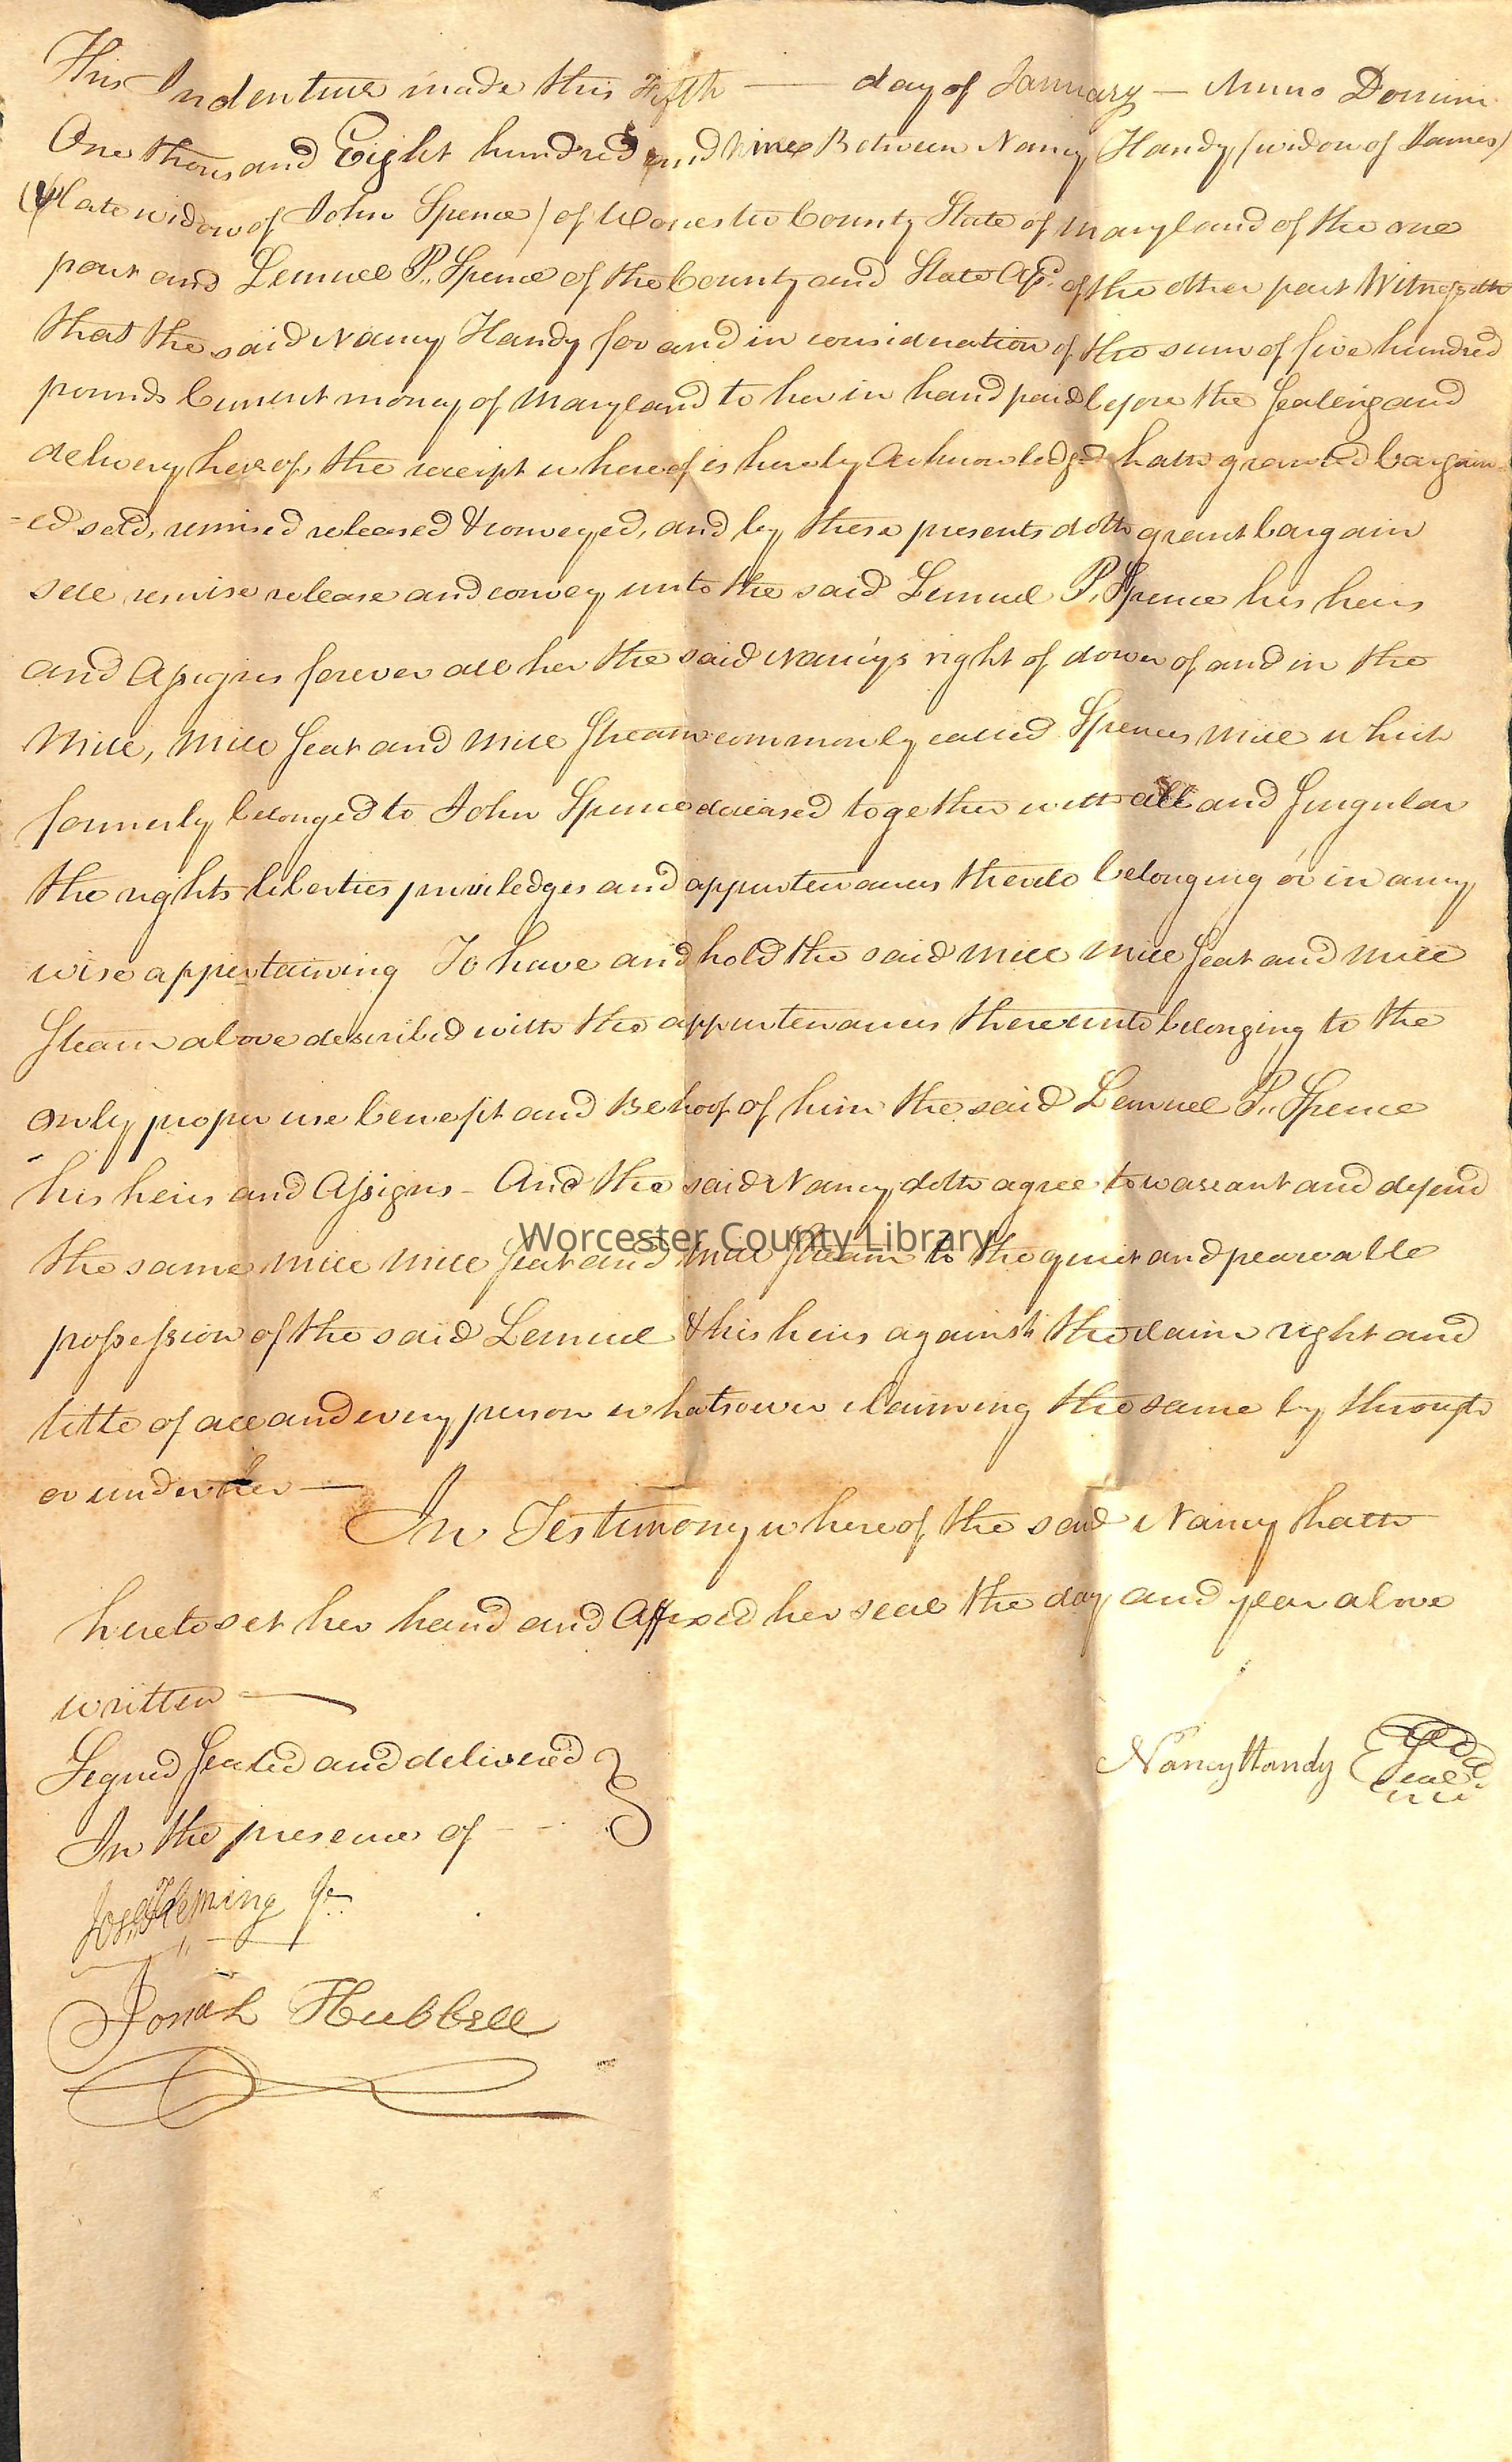 This Indenture made this Fifth — day of January — Anno Domini
One thousand Eight hundred and Nine Between Nancy Handy (widow of James)
(late widow of John Spence) of Worcester County State of Maryland of the one
part and Lemuel P. Spence of the County and State Afsd. of the other part Witnesseth
that the said Nancy Handy for and in consideration of the sum of five hundred
pounds Current money of Maryland to her in hand paid before the sealing and
delivery hereof, the receipt whereof is hereby Acknowledged hath granted bargain-
=ed sold, remised released & conveyed, and by these presents doth grant bargain
sell remise release and convey unto the said Lemuel P. Spence his heirs
and Assigns forever all her the said Nancy's right of dower of and in the
Mill, Mill seat and Mill Stream commonly called Spences Mill which
formerly belonged to John Spence deceased together with all and singular
the rights liberties priviledges and appurtenances thereto belonging or in any
wise appertaining To have and hold the said Mill Mill seat and Mill
Stream above described with the appurtenances thereunto belonging to the
only proper use benefit and Behoof of him the said Lemuel P. Spence
his heirs and Assigns - And the said Nancy doth agree to warrant and defend
the same Mill Mill seat and Mill Stream to the quiet and peaceable
Worcester County Library
possession of the said Lemuel & his heirs against the claim right and
title of all and every person whatsoever claiming the same by through
or under her —
In Testimony whereof the said Nancy hath
hereto set her hand and Affixed her seal the day and year above
written —
Signed sealed and delivered
In the presence of - -
Nancy Handy Seal
Jos. Fleming Jr.
Jonah Hubbell